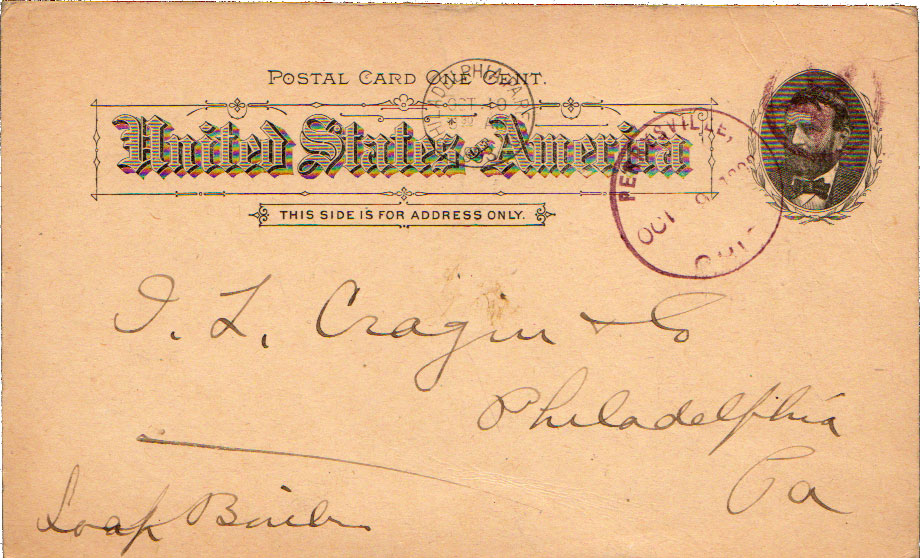 POSTAL CARD ONE CENT.
United States America
THIS SIDE IS FOR ADDRESS ONLY.
PHILADELPHIA, PA.
OCT 10
OCT 9
OHIO
I. L. Cragin & Co
Philadelphia
Pa
Soap